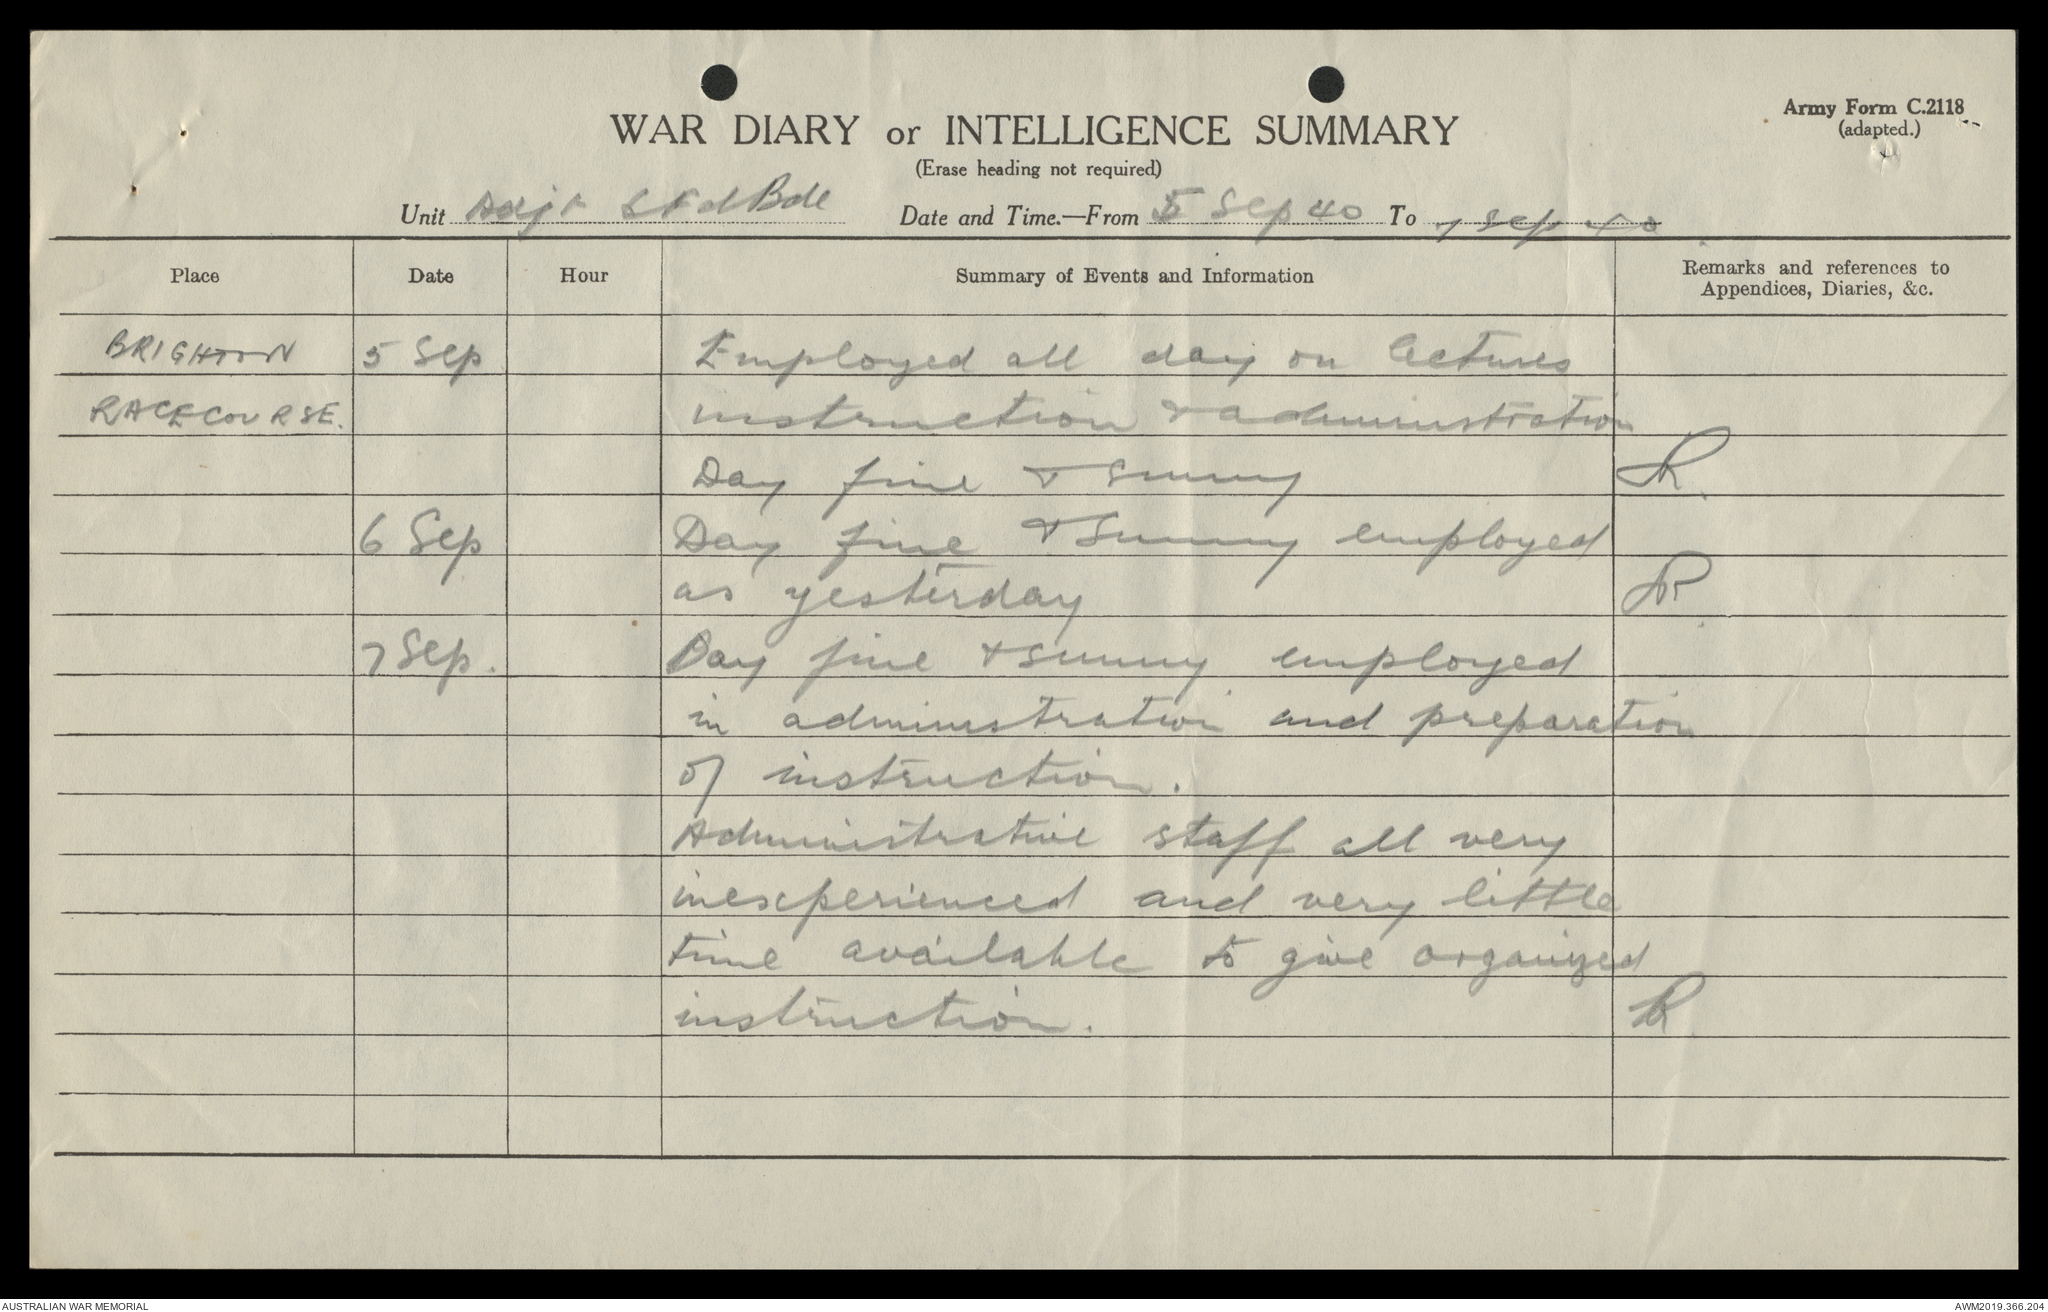 Army Form C.2118
(adapted.)
WAR DIARY or INTELLIGENCE SUMMARY
(Erase heading not required)
Unit Adjt Bde Date and Time.—From 5 Sep 40 To 7 Sep 40
Place Date Hour Summary of Events and Information Remarks and references to
Appendices, Diaries, &c.
BRIGHTON 5 Sep Employed all day on lectures
RACECOURSE. instruction & administration
Day fine & sunny
6 Sep Day fine & sunny employed
as yesterday
7 Sep. Day fine & sunny employed
in administration and preparation
of instruction.
Administrative staff all very
inexperienced and very little
time available to give organized
instruction.
AUSTRALIAN WAR MEMORIAL AWM2019.366.204